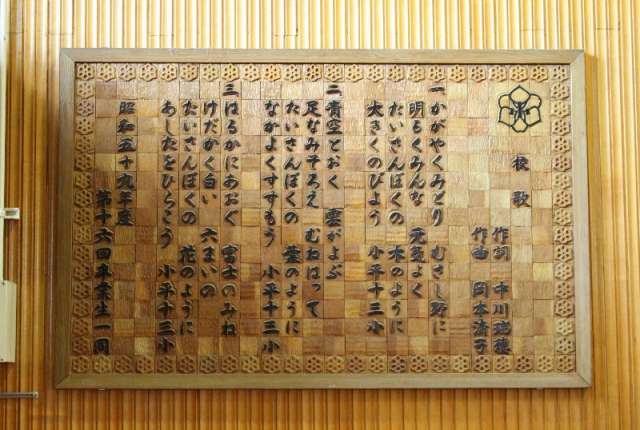 校歌
作詞 中川瑞穂
作曲 岡本清子
一 かがやくみどり むさし野に
明るくみんな 元気よく
たいさんぼくの 木のように
大きくのびよう 小平十三小
二 青空とおく 雲がよぶ
足なみそろえ むねはって
たいさんぼくの 葉のように
なかよくすすもう 小平十三小
三 はるかにあおぐ 富士のみね
けだかく白い 六まいの
たいさんぼくの 花のように
あしたをひらこう 小平十三小
昭和五十九年度
第十六回卒業生一同